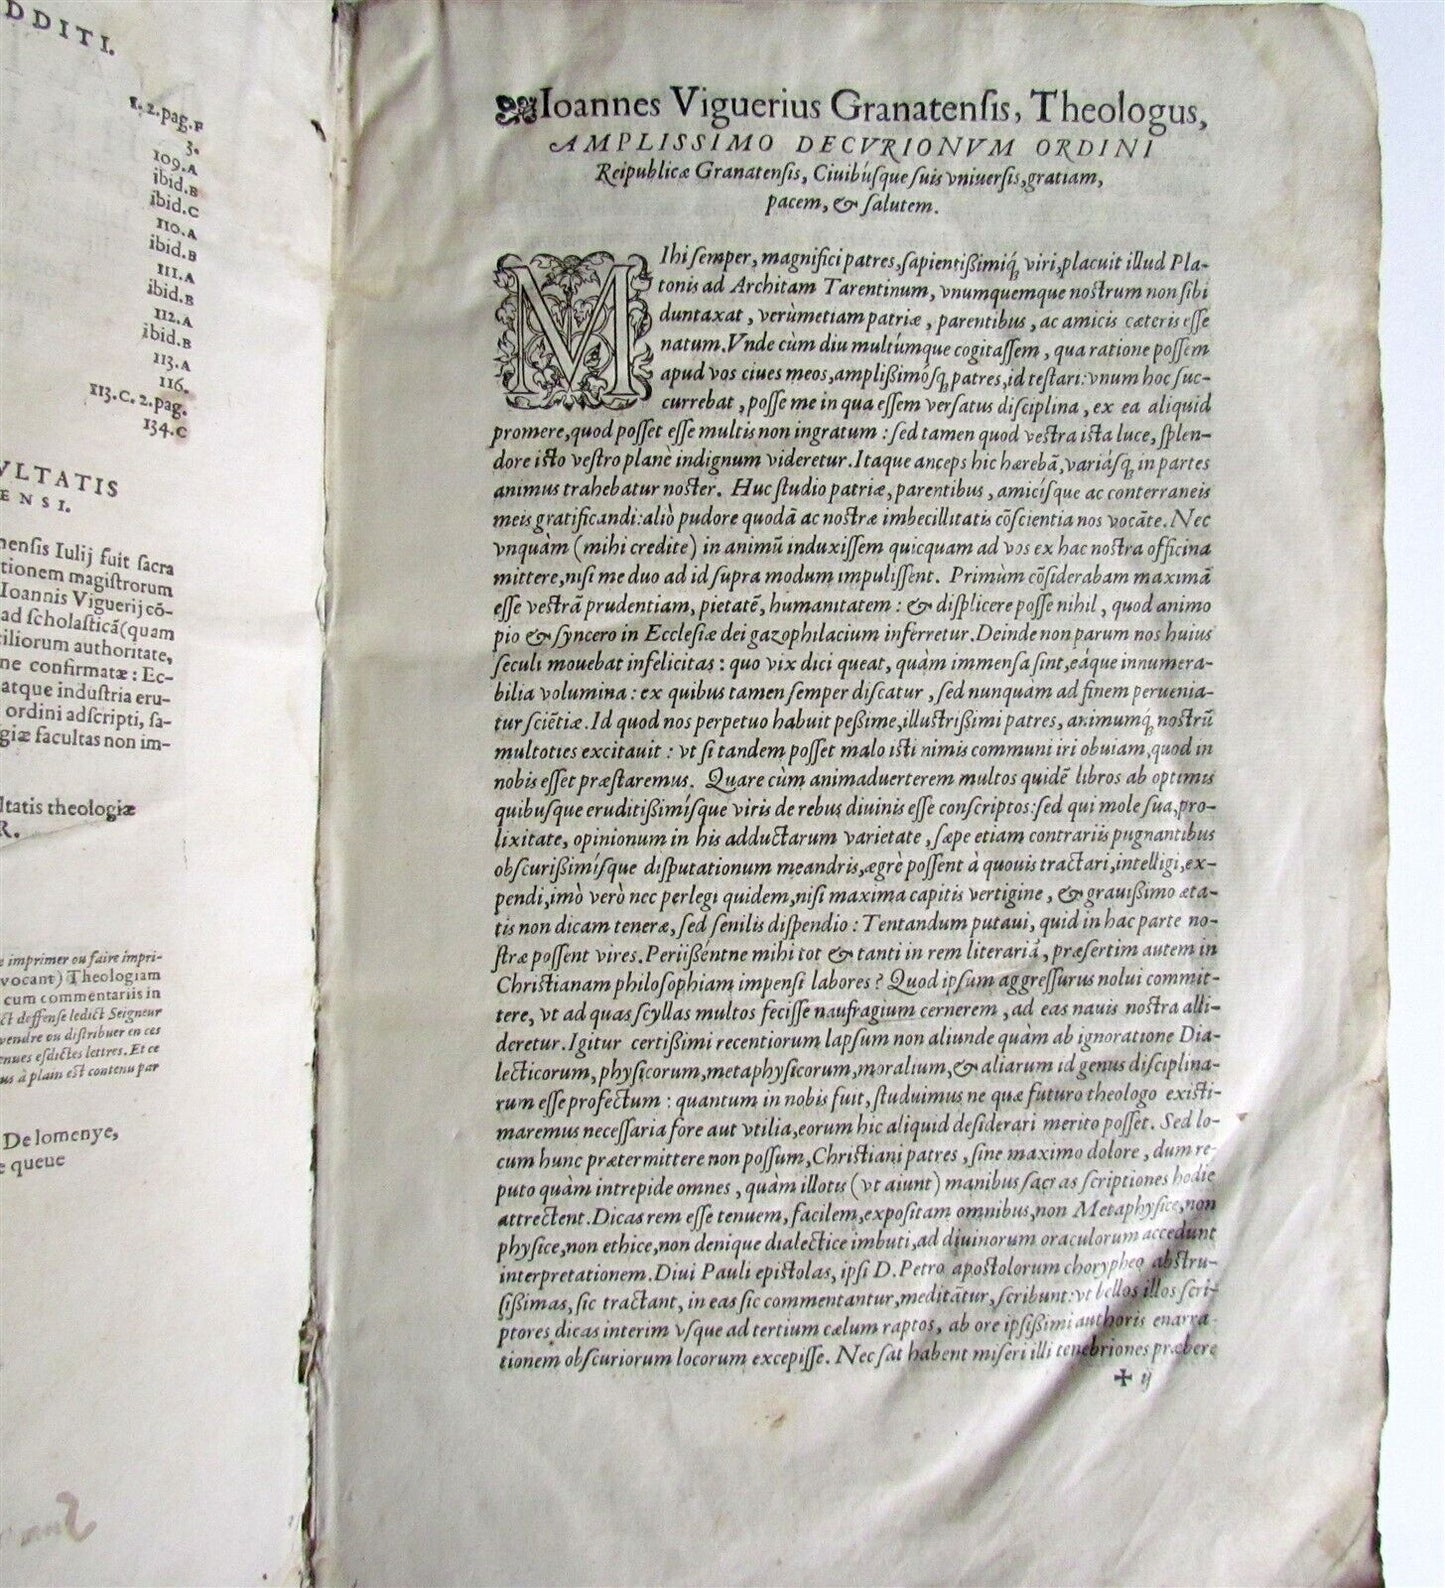 DDITI.
1. 2. pag. F
3.
109. A
ibid. B
ibid. C
110. A
ibid. B
111. A
ibid. B
112. A
ibid. B
113. A
116.
113. C. 2. pag.
134. C
VLTATIS
ENSI.
nensis Iulij fuit sacra
tionem magistrorum
Ioannis Viguerij cō-
ad scholasticā (quam
ciliorum authoritate,
ne confirmatæ : Ec-
atque industria eru-
ordini adscripti, sa-
giæ facultas non im-
ltatis theologiæ
R.
e imprimer ou faire impri-
vocant) Theologiam
cum commentariis in
ct deffense ledict Seigneur
vendre ou distribuer en ces
enues esdictes lettres. Et ce
us à plain est contenu par
De lomenye,
e queue
Ioannes Viguerius Granatensis, Theologus,
AMPLISSIMO DECVRIONVM ORDINI
Reipublicæ Granatensis, Ciuibúsque suis vniuersis, gratiam,
pacem, & salutem.
MIhi semper, magnifici patres, sapientißimiq́ȝ viri, placuit illud Pla-
tonis ad Architam Tarentinum, vnumquemque nostrum non sibi
duntaxat, verùmetiam patriæ, parentibus, ac amicis cæteris esse
natum. Vnde cùm diu multúmque cogitassem, qua ratione possem
apud vos ciues meos, amplißimósqȝ patres, id testari: vnum hoc suc-
currebat, posse me in qua essem versatus disciplina, ex ea aliquid
promere, quod posset esse multis non ingratum : sed tamen quod vestra ista luce, splen-
dore isto vestro planè indignum videretur. Itaque anceps hic hærebā, variásqȝ in partes
animus trahebatur noster. Huc studio patriæ, parentibus, amicísque ac conterraneis
meis gratificandi: aliò pudore quodā ac nostræ imbecillitatis cōscientia nos vocāte. Nec
vnquàm (mihi credite) in animū induxissem quicquam ad vos ex hac nostra officina
mittere, nisi me duo ad id supra modum impulissent. Primùm cōsiderabam maximā
esse vestrā prudentiam, pietatē, humanitatem : & displicere posse nihil, quod animo
pio & syncero in Ecclesiæ dei gazophilacium inferretur. Deinde non parum nos huius
seculi mouebat infelicitas : quo vix dici queat, quàm immensa sint, eáque innumera-
bilia volumina : ex quibus tamen semper discatur, sed nunquam ad finem perueniá-
tur sciētiæ. Id quod nos perpetuo habuit peßime, illustrißimi patres, animumq́ȝ nostrū
multoties excitauit : vt si tandem posset malo isti nimis communi iri obuiam, quod in
nobis esset præstaremus. Quare cùm animaduerterem multos quidē libros ab optimis
quibusque eruditißimísque viris de rebus diuinis esse conscriptos: sed qui mole sua, pro-
lixitate, opinionum in his adductarum varietate, sæpe etiam contrariis pugnantibus
obscurißimísque disputationum meandris, ægrè possent à quouis tractari, intelligi, ex-
pendi, imò verò nec perlegi quidem, nisi maxima capitis vertigine, & grauißimo æta-
tis non dicam teneræ, sed senilis dispendio : Tentandum putaui, quid in hac parte no-
stræ possent vires. Periißéntne mihi tot & tanti in rem literariā, præsertim autem in
Christianam philosophiam impensi labores? Quod ipsum aggressurus nolui commit-
tere, vt ad quas scyllas multos fecisse naufragium cernerem, ad eas nauis nostra alli-
deretur. Igitur certißimi recentiorum lapsum non aliunde quàm ab ignoratione Dia-
lecticorum, physicorum, metaphysicorum, moralium, & aliarum id genus disciplina-
rum esse profectum : quantum in nobis fuit, studuimus ne quæ futuro theologo existi-
maremus necessaria fore aut vtilia, eorum hic aliquid desiderari merito posset. Sed lo-
cum hunc prætermittere non possum, Christiani patres, sine maximo dolore, dum re-
puto quàm intrepide omnes, quàm illotis (vt aiunt) manibus sacras scriptiones hodie
attrectent. Dicas rem esse tenuem, facilem, expositam omnibus, non Metaphysice, non
physice, non ethice, non denique dialectice imbuti, ad diuinorum oraculorum accedunt
interpretationem. Diui Pauli epistolas, ipsi D. Petro apostolorum chorypheo abstru-
sißimas, sic tractant, in eas sic commentantur, meditātur, scribunt: vt bellos illos scri-
ptores dicas interim vsque ad tertium cælum raptos, ab ore ipsißimi authoris enarra-
tionem obscuriorum locorum excepisse. Nec sat habent miseri illi tenebriones præbere
✠ ij